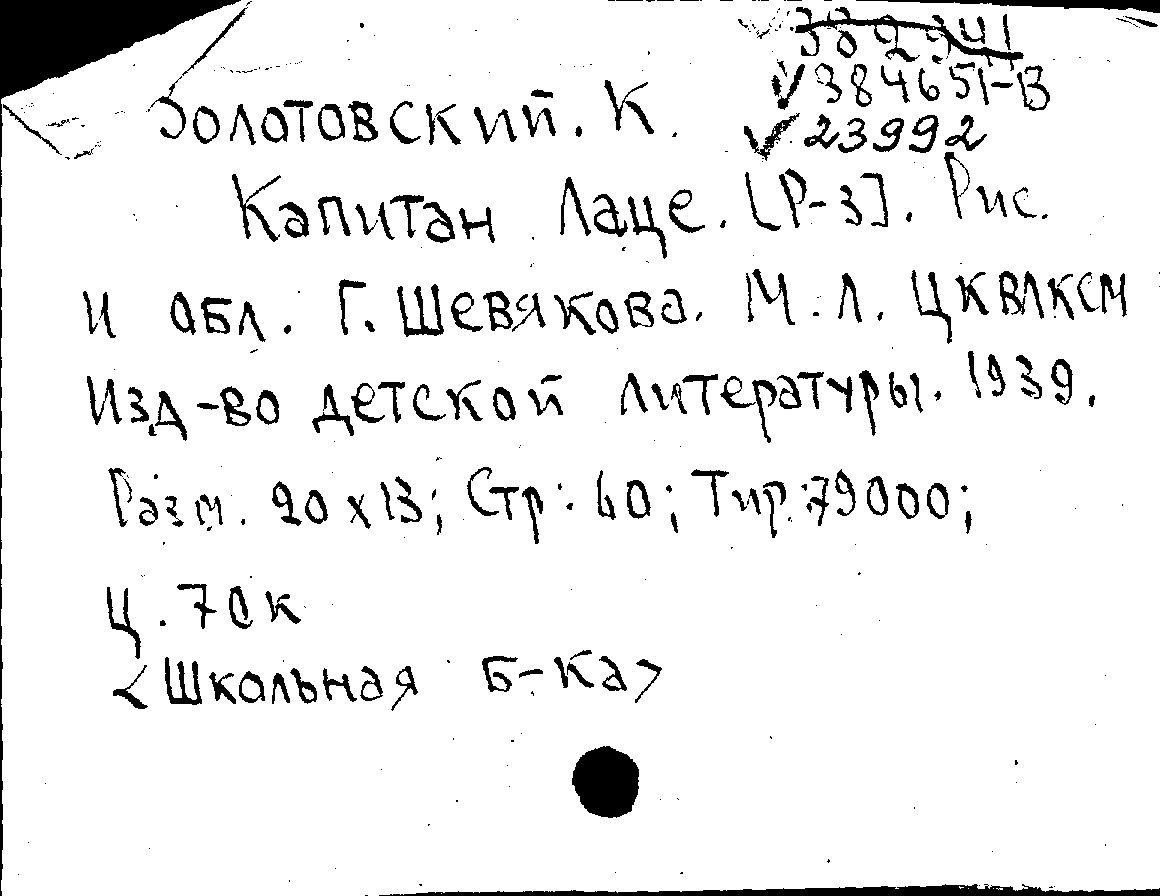 382941
384651-В
23992
Золотовский. К.
Капитан Лаце. [Р-з]. Рис.
и обл. Г. Шевякова. М.Л. ЦКВЛКСМ
Изд-во детской литературы. 1939.
Разм. 20 х 13; Стр: 40; Тир: 79000;
Ц. 70к
<Школьная б-ка>